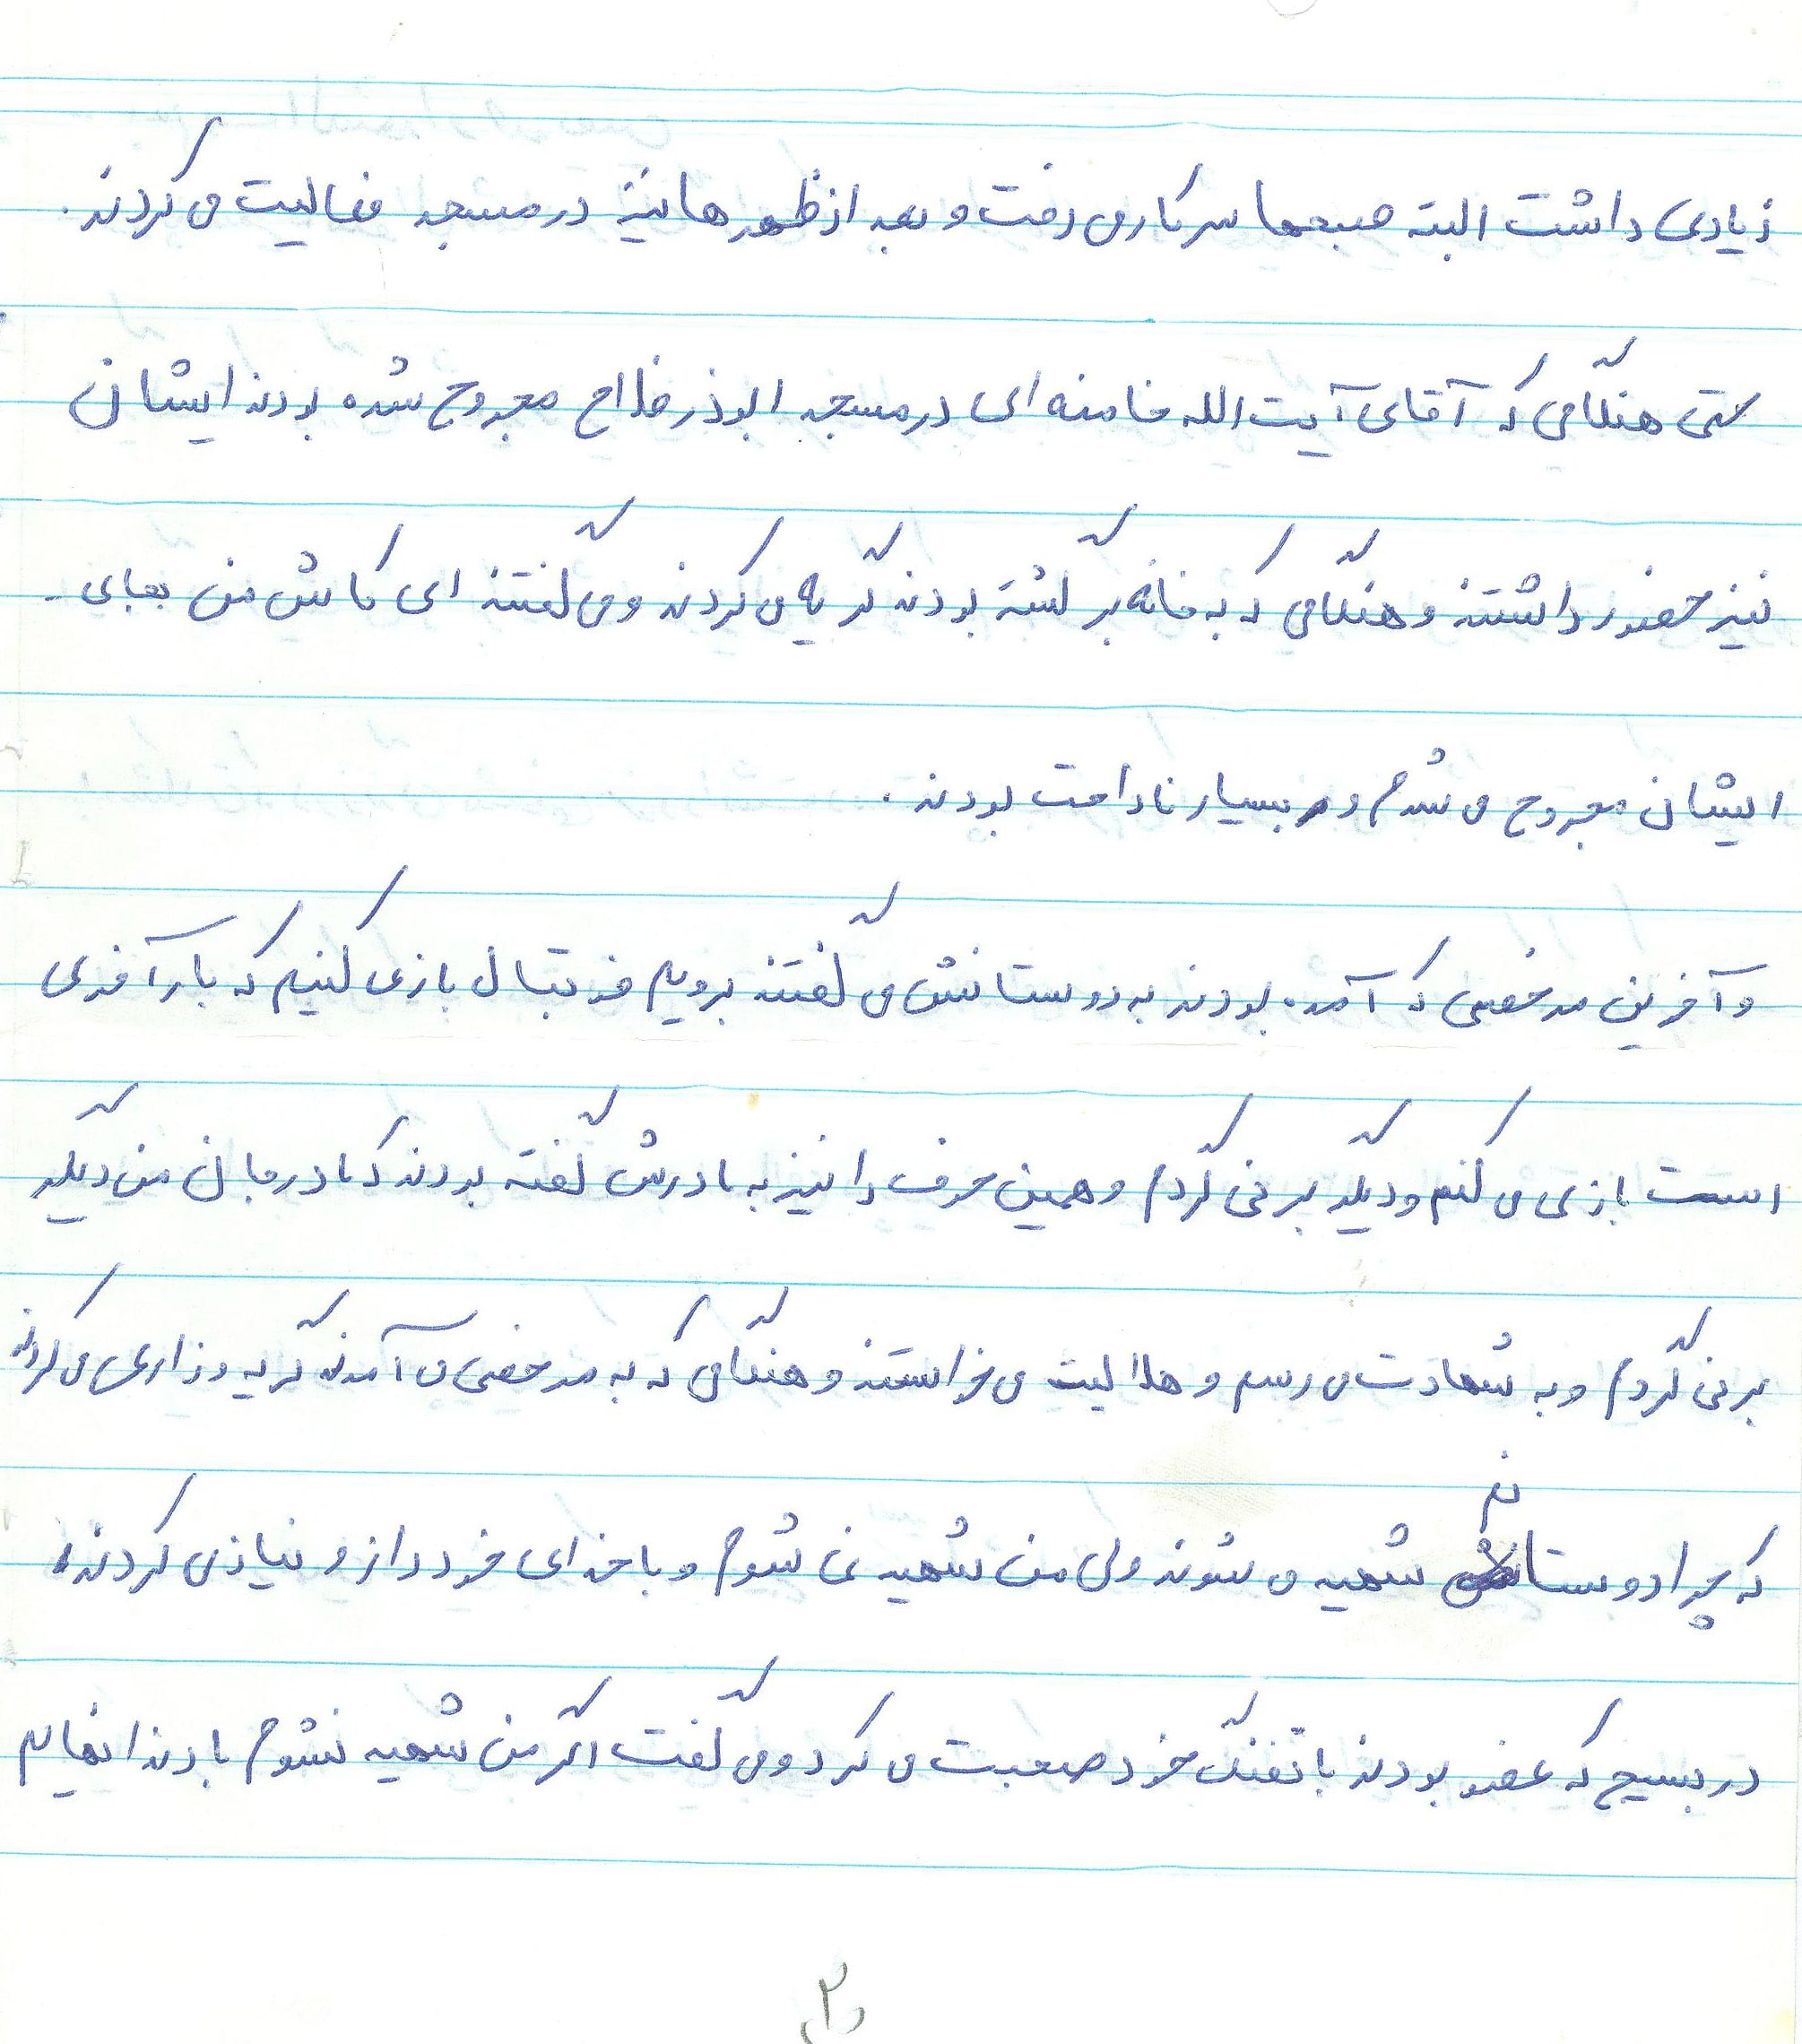 زیادی داشت البته صبحها سر کار می رفت و بعد از ظهرها نیز در مسجد فعالیت می کردند.
حتی هنگامی که آقای آیت الله خامنه ای در مسجد ابوذر فلاح مجروح شده بودند ایشان
نیز حضور داشتند و هنگامی که به خانه برگشته بودند گریه می کردند و می گفتند ای کاش من بجای -
ایشان مجروح می شدم و بسیار ناراحت بودند.
و آخرین مرخصی که آمده بودند به دوستانش می گفتند برویم فوتبال بازی کنیم که بار آخری
است بازی می کنم و دیگر بر نمی گردم و همین حرف را نیز به مادرش گفته بودند که مادر جان من دیگر
بر نمی گردم و به شهادت می رسم و حلالیت می خواستند و هنگامی که به مرخصی می آمدند گریه و زاری می کردند
که چرا دوستانم شهید می شوند ولی من شهید نمی شوم و با خدای خود راز و نیاز می کردند
در بسیج که عضو بودند با تفنگ خود صحبت می کرد و می گفت اگر من شهید نشوم باید
۲